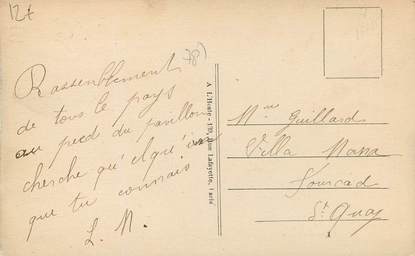 12t
78)
Rassemblement
de tous le pays
au pied du pavillon
cherche quélqu'un
que tu connais
L. N.
A. L'Hoste - 199, Rue Lafayette, Paris
Mme Guillard
Villa Nana
Fourcad
St Quay